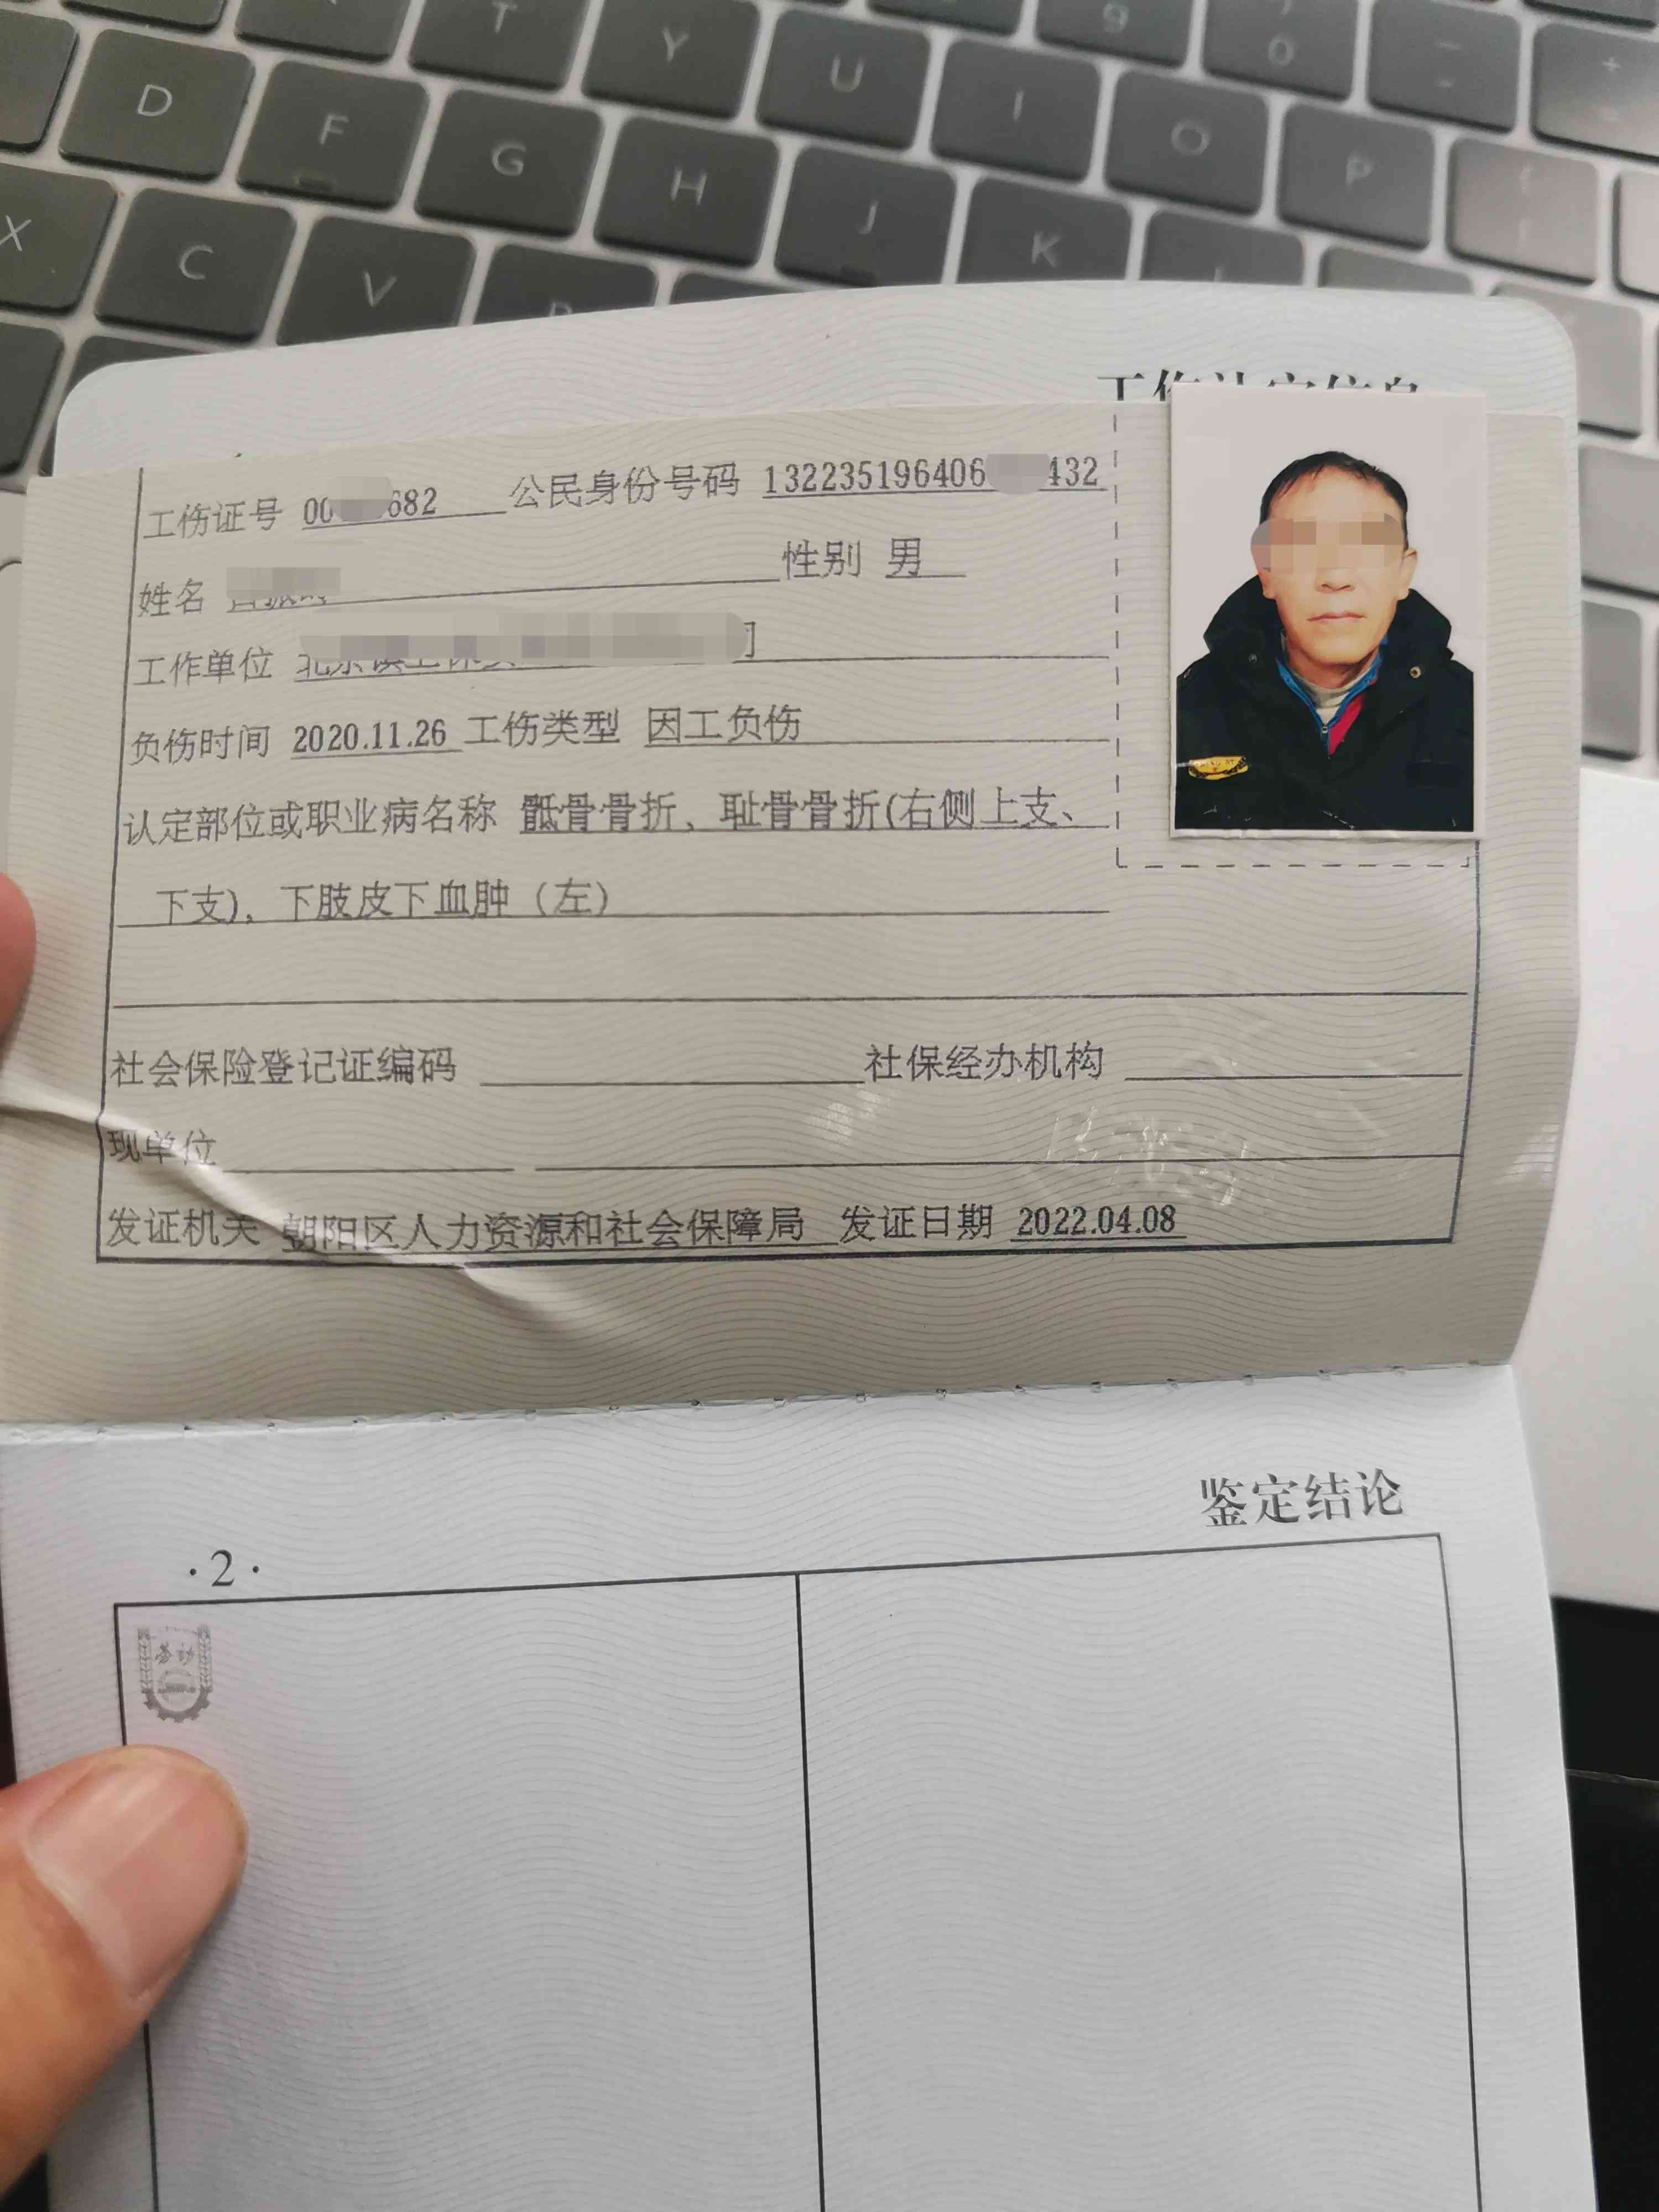 T
Y
U
I
9
0
D
F
G
H
J
K
O
P
X
C
V
工伤认定信息
工伤证号 00 682 公民身份号码 132235196406 432
姓名 性别 男
工作单位
负伤时间 2020.11.26 工伤类型 因工负伤
认定部位或职业病名称 骶骨骨折、耻骨骨折(右侧上支、
下支)，下肢皮下血肿（左）
社会保险登记证编码 社保经办机构
现单位
发证机关 朝阳区人力资源和社会保障局 发证日期 2022.04.08
鉴定结论
·2·
劳动